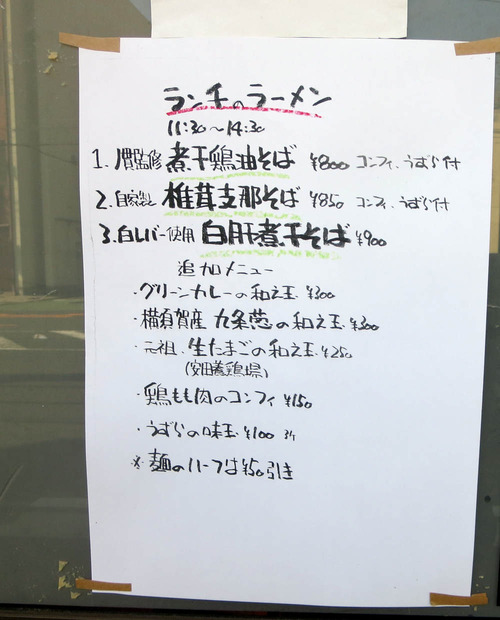 ランチのラーメン
11:30〜14:30
1. 煮干鶏油そば ¥800 コンフィ、うずら付
2. 自家製 椎茸支那そば ¥850 コンフィ、うずら付
3. 白レバー使用 白肝煮干そば ¥900
追加メニュー
・グリーンカレーの和え玉 ¥300
・横須賀産 九条葱の和え玉 ¥300
・元祖 生たまごの和え玉 ¥250
(安田養鶏場)
・鶏もも肉のコンフィ ¥150
・うずらの味玉 ¥100
※麺のハーフは¥50引き